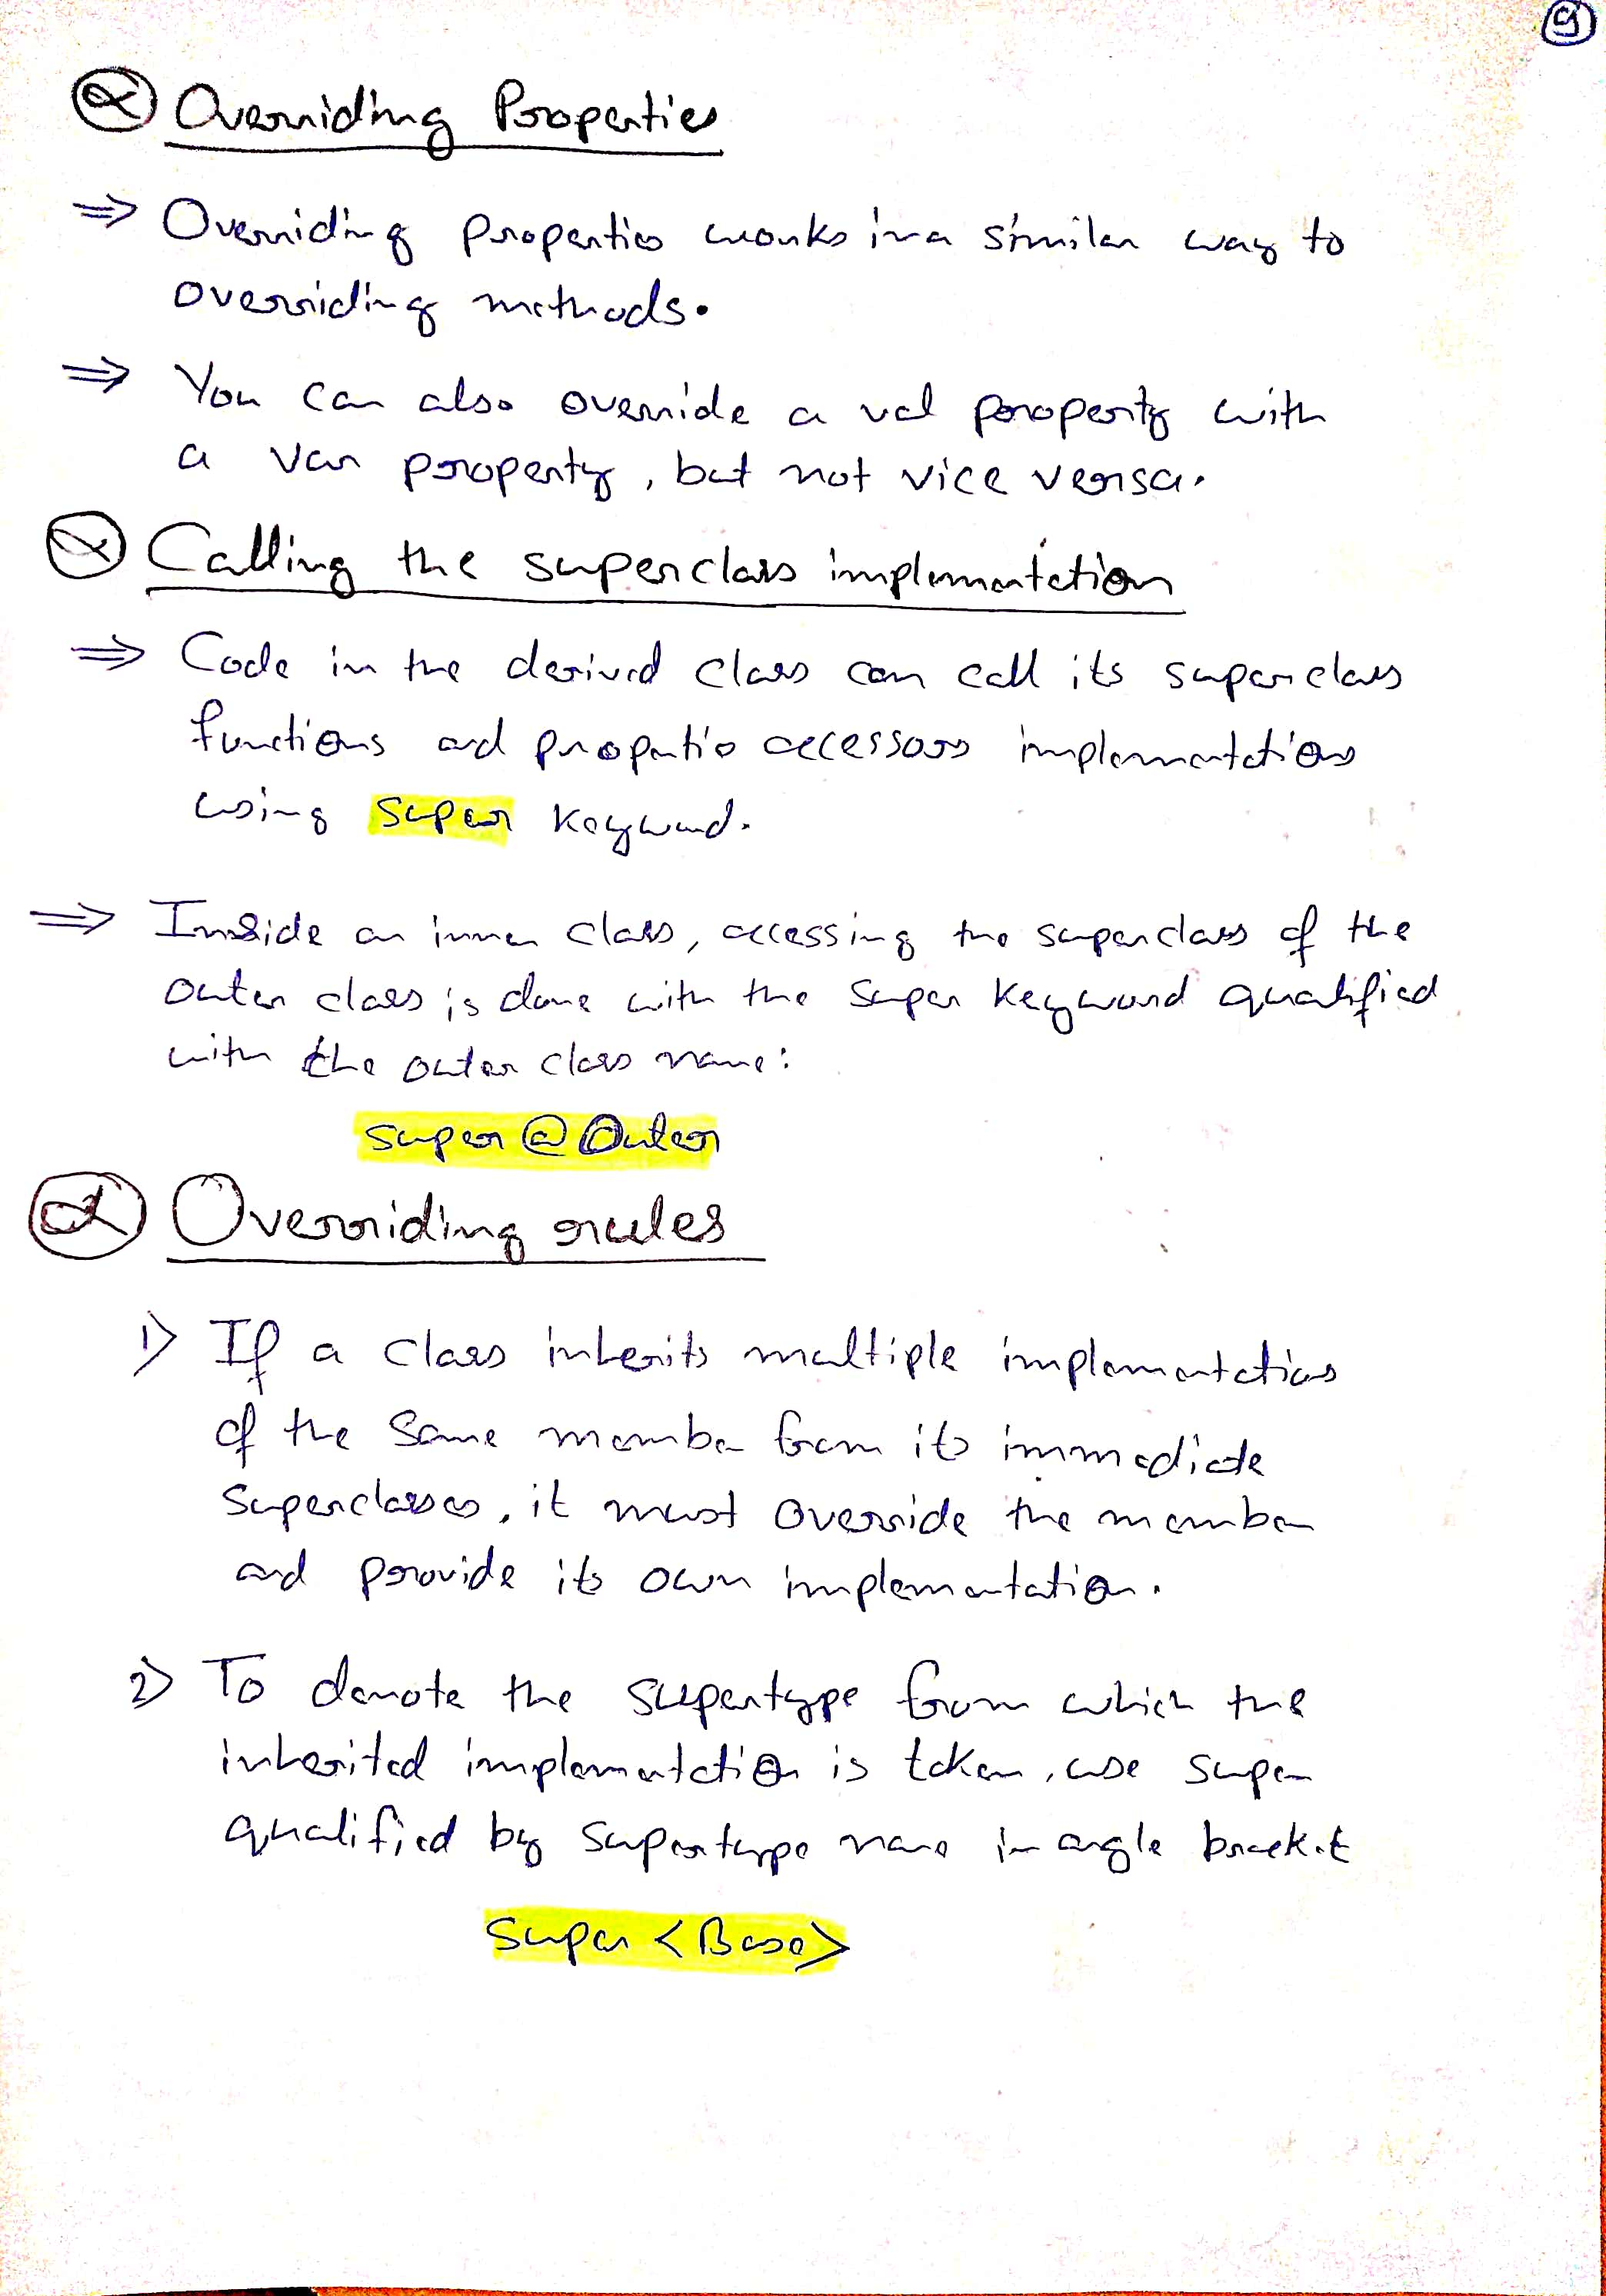 9
Overriding Properties
⇒ Overriding properties works in a similar way to
overriding methods.
⇒ You can also override a val property with
a var property, but not vice versa.
Calling the superclass implementation
⇒ Code in the derived class can call its superclass
functions and propertis accessors implementations
using super keyword.
⇒ Inside an inner class, accessing the superclass of the
outer class is done with the super keyword qualified
with the outer class name:
super@Outer
Overriding rules
1) If a class inherits multiple implementations
of the same member from its immediate
superclasses, it must override the member
and provide its own implementation.
2) To denote the supertype from which the
inherited implementation is taken, use super
qualified by supertype name in angle bracket
super<Base>